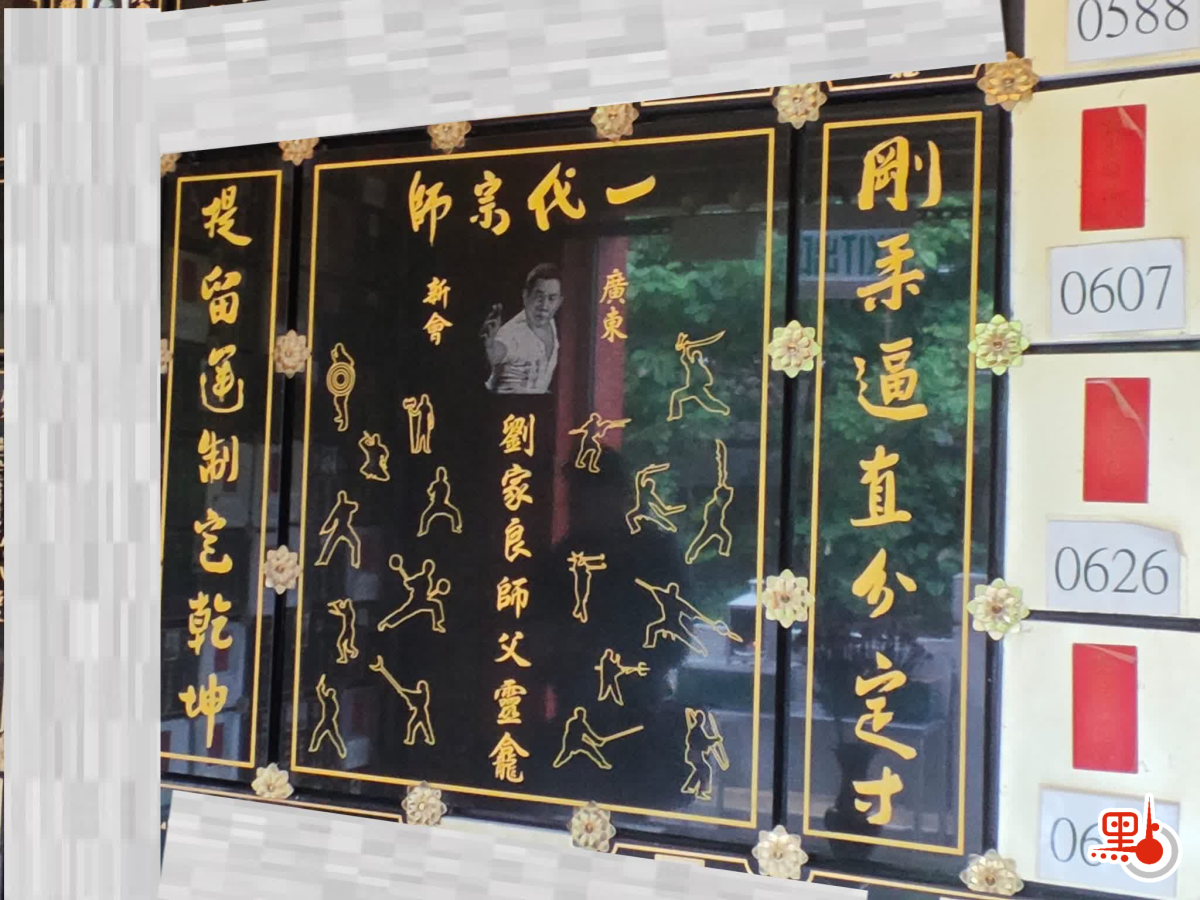 一代宗師
廣東
新會
劉家良師父靈龕
剛柔逼直分定寸
提留運制定乾坤
0588
0607
0626
06
EXIT出口
點